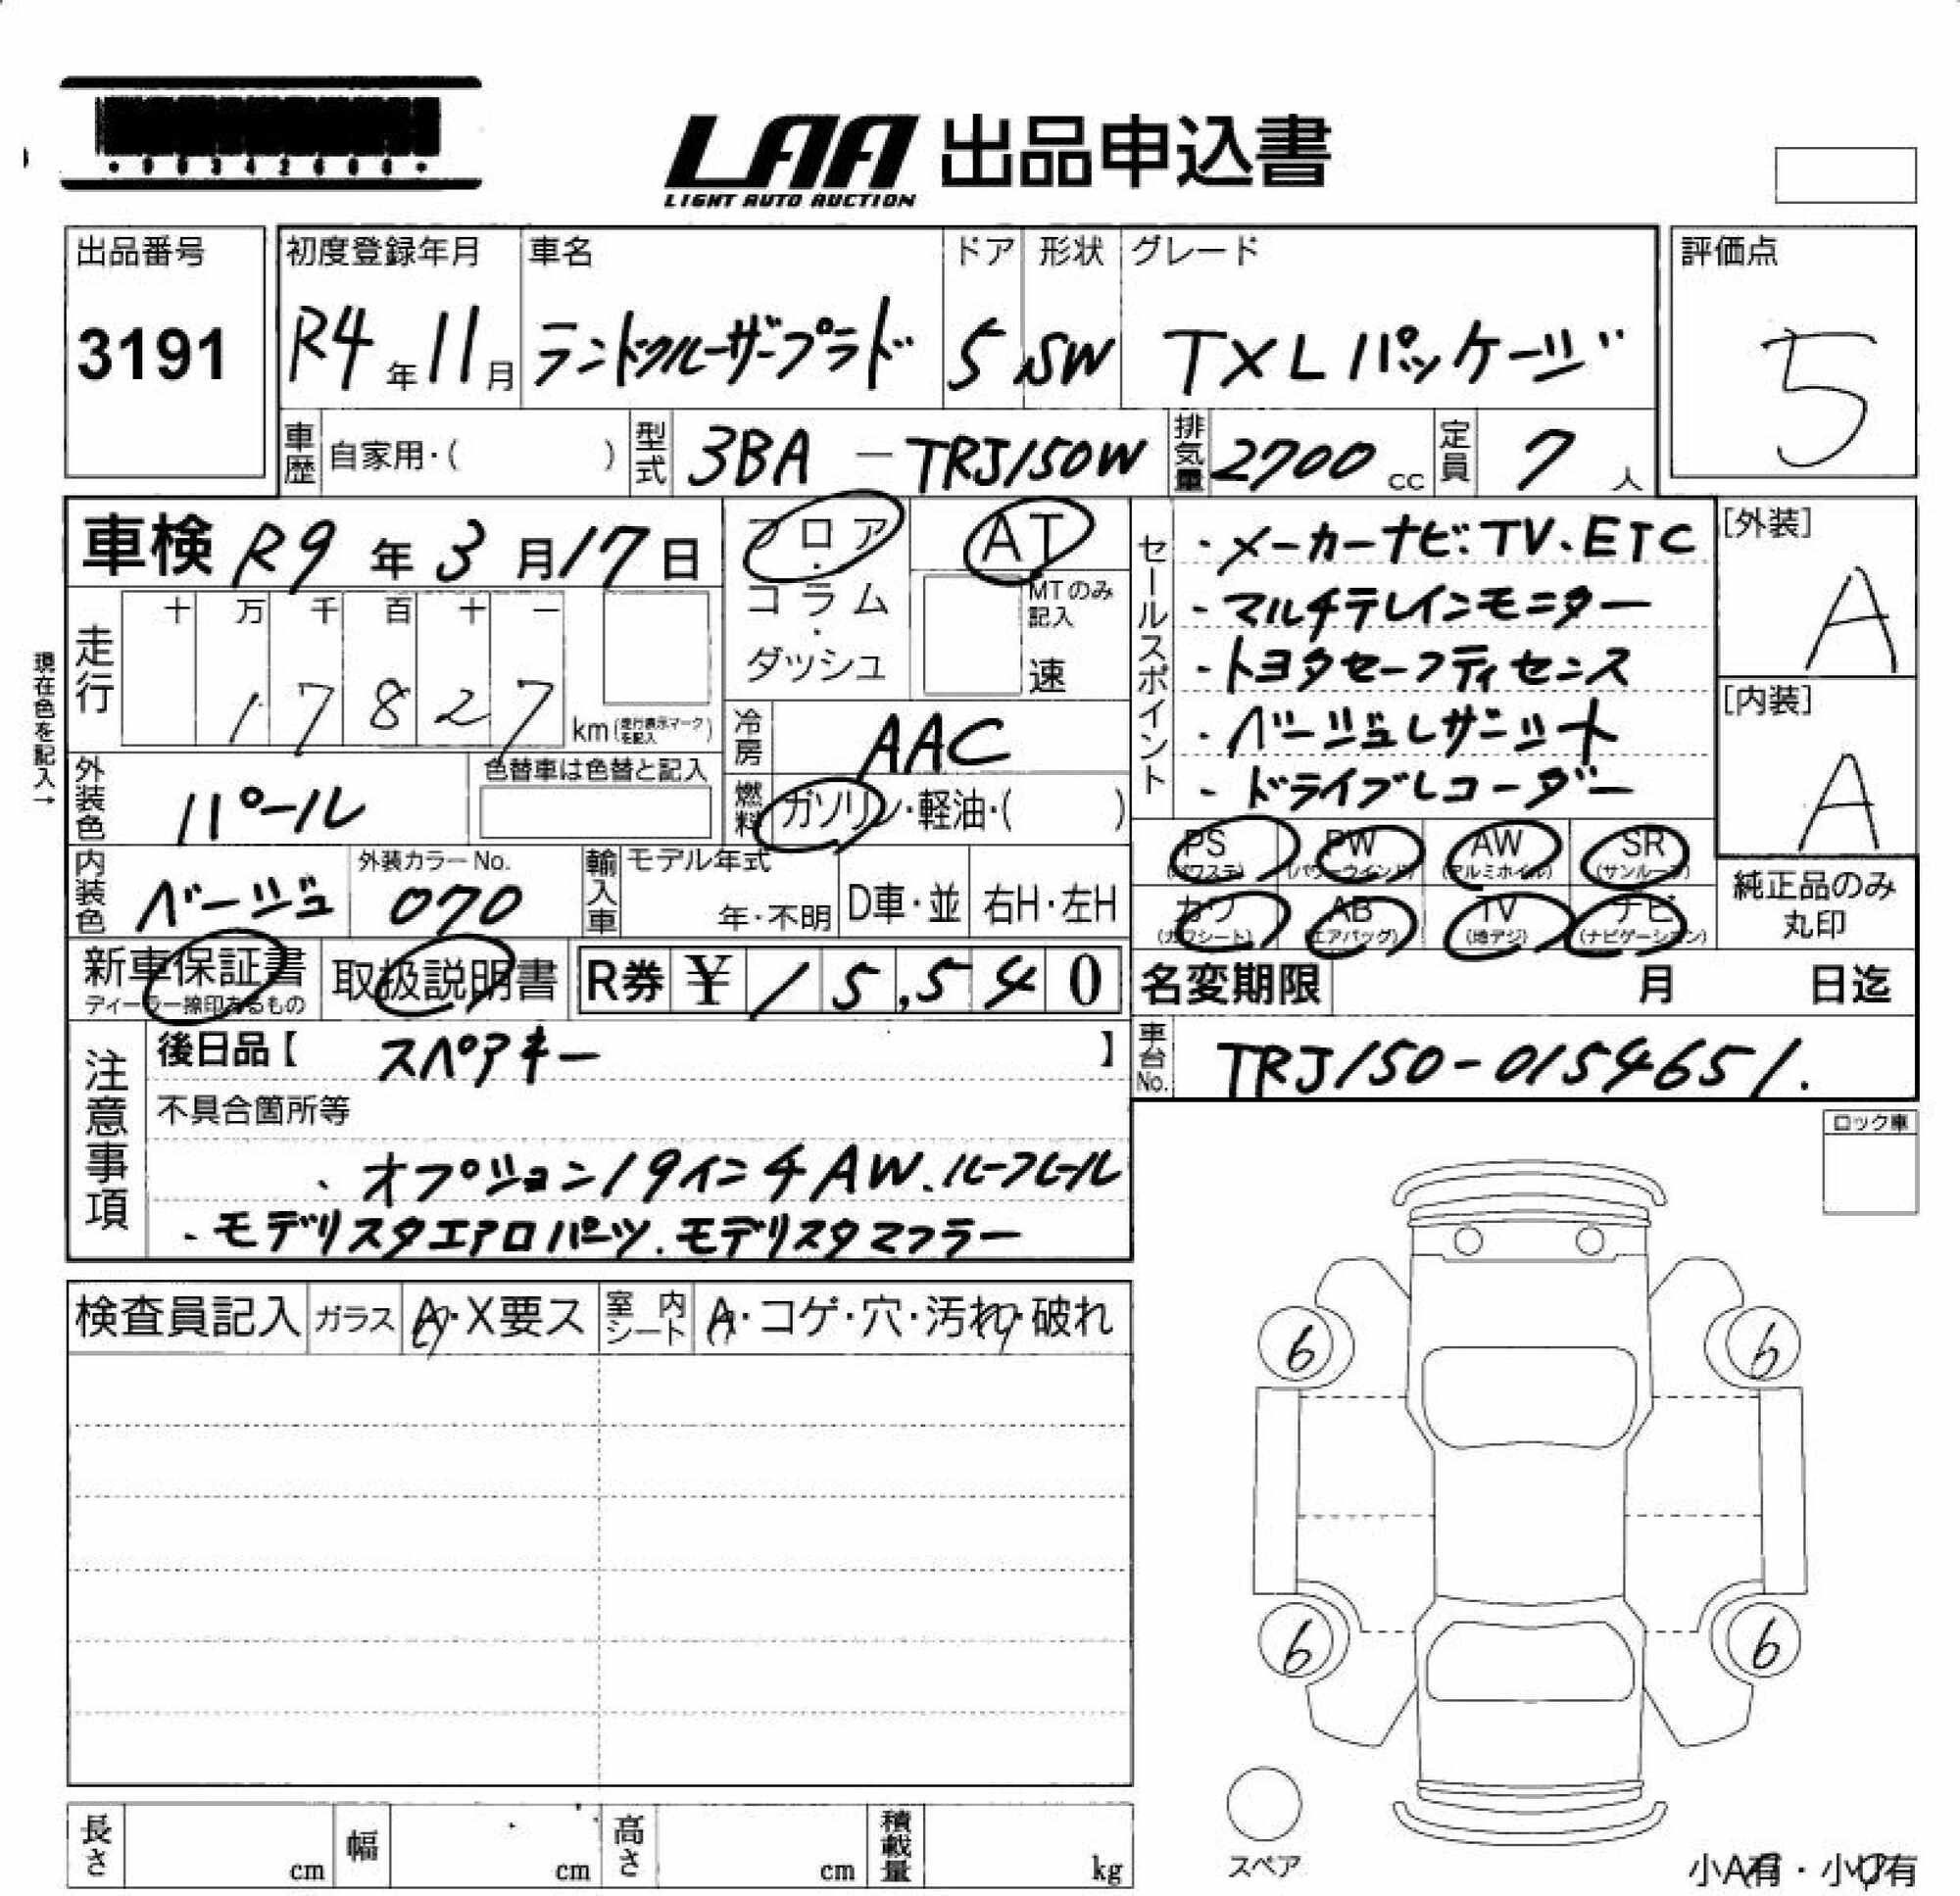 LAA 出品申込書
LIGHT AUTO AUCTION
出品番号
3191
初度登録年月
R4年11月
車名
ランドクルーザープラド
ドア
5
形状
SW
グレード
TX Lパッケージ
評価点
5
車歴 自家用・( )
型式 3BA - TRJ150W
排気量 2700 cc
定員 7 人
車検 R9年3月17日
フロア・コラム・ダッシュ
AT
MTのみ記入
速
現在色を記入→
走行
十 万 千 百 十 一
1 7 8 2 7 km (走行表示マークを記入)
冷房 AAC
燃料 ガソリン・軽油・( )
外装色 パール
色替車は色替と記入
内装色 ベージュ
外装カラーNo.
070
輸入車 モデル年式
年・不明
D車・並
右H・左H
新車保証書
ディーラー捺印あるもの
取扱説明書
R券 ¥ 15,540
セールスポイント
・メーカーナビ、TV、ETC
・マルチテレインモニター
・トヨタセーフティセンス
・ベージュレザーシート
・ドライブレコーダー
[外装]
A
[内装]
A
PS (パワステ)
PW (パワーウインド)
AW (アルミホイル)
SR (サンルーフ)
カワ (カワシート)
AB (エアバッグ)
TV (地デジ)
ナビ (ナビゲーション)
純正品のみ
丸印
名変期限 月 日迄
車台No. TRJ150-0154651.
注意事項
後日品【 スペアキー 】
不具合箇所等
、オプション19インチAW、ルーフレール
・モデリスタエアロパーツ、モデリスタマフラー
ロック車
検査員記入
ガラス A・X要ス
室内シート A・コゲ・穴・汚れ・破れ
6
6
6
6
スペア
長さ cm
幅 cm
高さ cm
積載量 kg
小A有・小U有